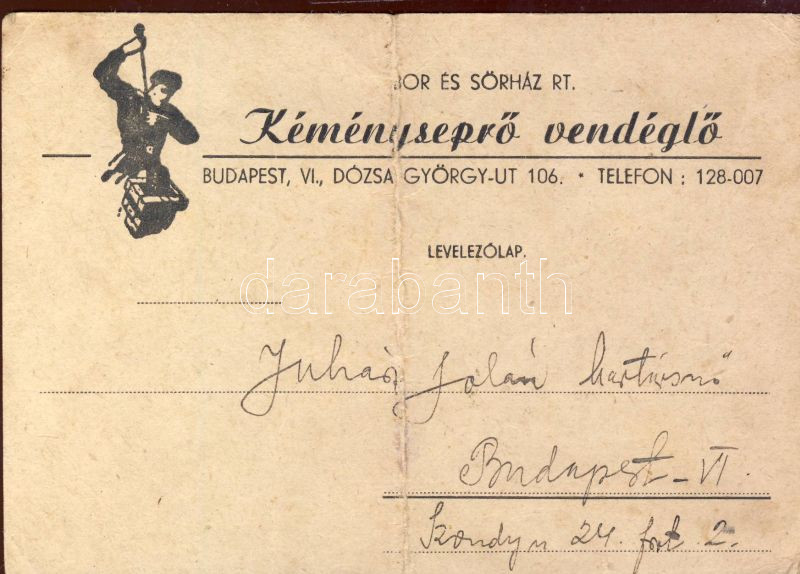 BOR ÉS SÖRHÁZ RT.
Kéményseprő vendéglő
BUDAPEST, VI., DÓZSA GYÖRGY-UT 106. • TELEFON : 128-007
LEVELEZŐLAP.
darabanth
Juhász Jolán
Budapest - VI.
24. 2.